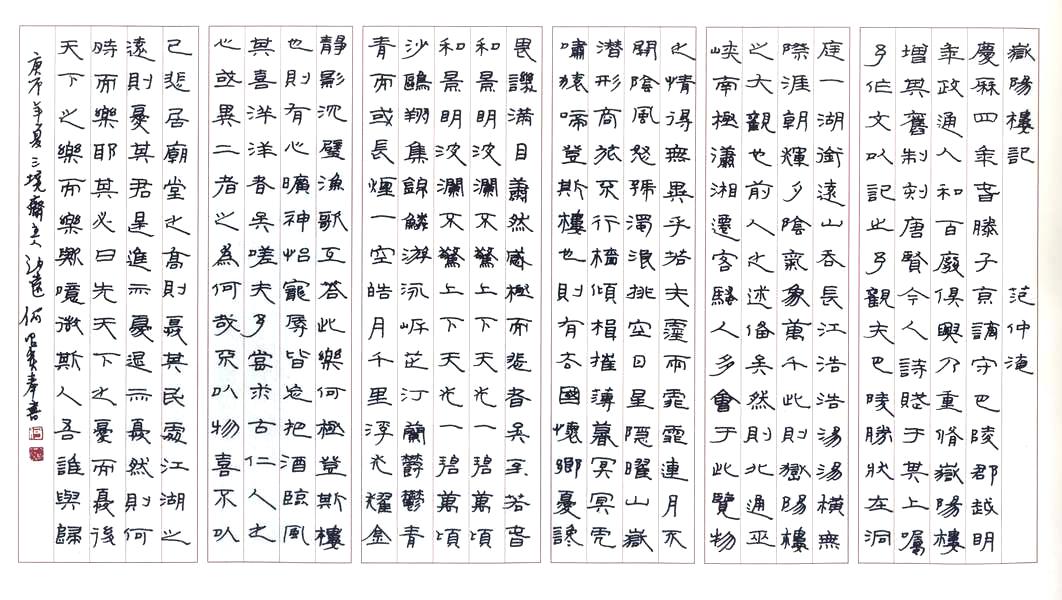 嶽陽樓記 范仲淹
慶厤四年春滕子京謫守巴陵郡越明
年政通人和百廢俱興乃重脩嶽陽樓
增其舊制刻唐賢今人詩賦于其上囑
予作文以記之予觀夫巴陵勝狀在洞
庭一湖銜遠山吞長江浩浩湯湯橫無
際涯朝輝夕陰氣象萬千此則嶽陽樓
之大觀也前人之述備矣然則北通巫
峽南極瀟湘遷客騷人多會于此覽物
之情得無異乎若夫霪雨霏霏連月不
開陰風怒號濁浪排空日星隱曜山嶽
潛形商旅不行檣傾楫摧薄暮冥冥虎
嘯猿啼登斯樓也則有去國懷鄉憂讒
畏譏滿目蕭然感極而悲者矣至若春
和景明波瀾不驚上下天光一碧萬頃
和景明波瀾不驚上下天光一碧萬頃
沙鷗翔集錦鱗游泳岸芷汀蘭鬱鬱青
青而或長煙一空皓月千里浮光耀金
靜影沉璧漁歌互答此樂何極登斯樓
也則有心曠神怡寵辱皆忘把酒臨風
其喜洋洋者矣嗟夫予嘗求古仁人之
心或異二者之為何哉不以物喜不以
己悲居廟堂之高則憂其民處江湖之
遠則憂其君是進亦憂退亦憂然則何
時而樂耶其必曰先天下之憂而憂後
天下之樂而樂歟噫微斯人吾誰與歸
庚子年夏三境齋主人遠何奉書